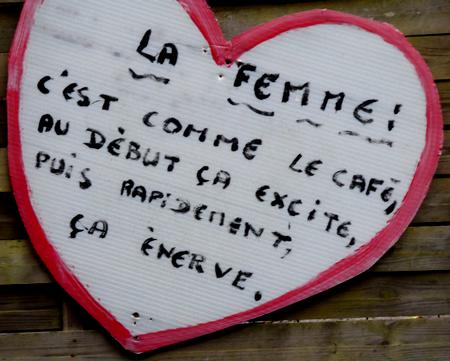 LA FEMME!
C'EST COMME LE CAFÉ,
AU DÉBUT ÇA EXCITE,
PUIS RAPIDEMENT,
ÇA ÈNERVE.